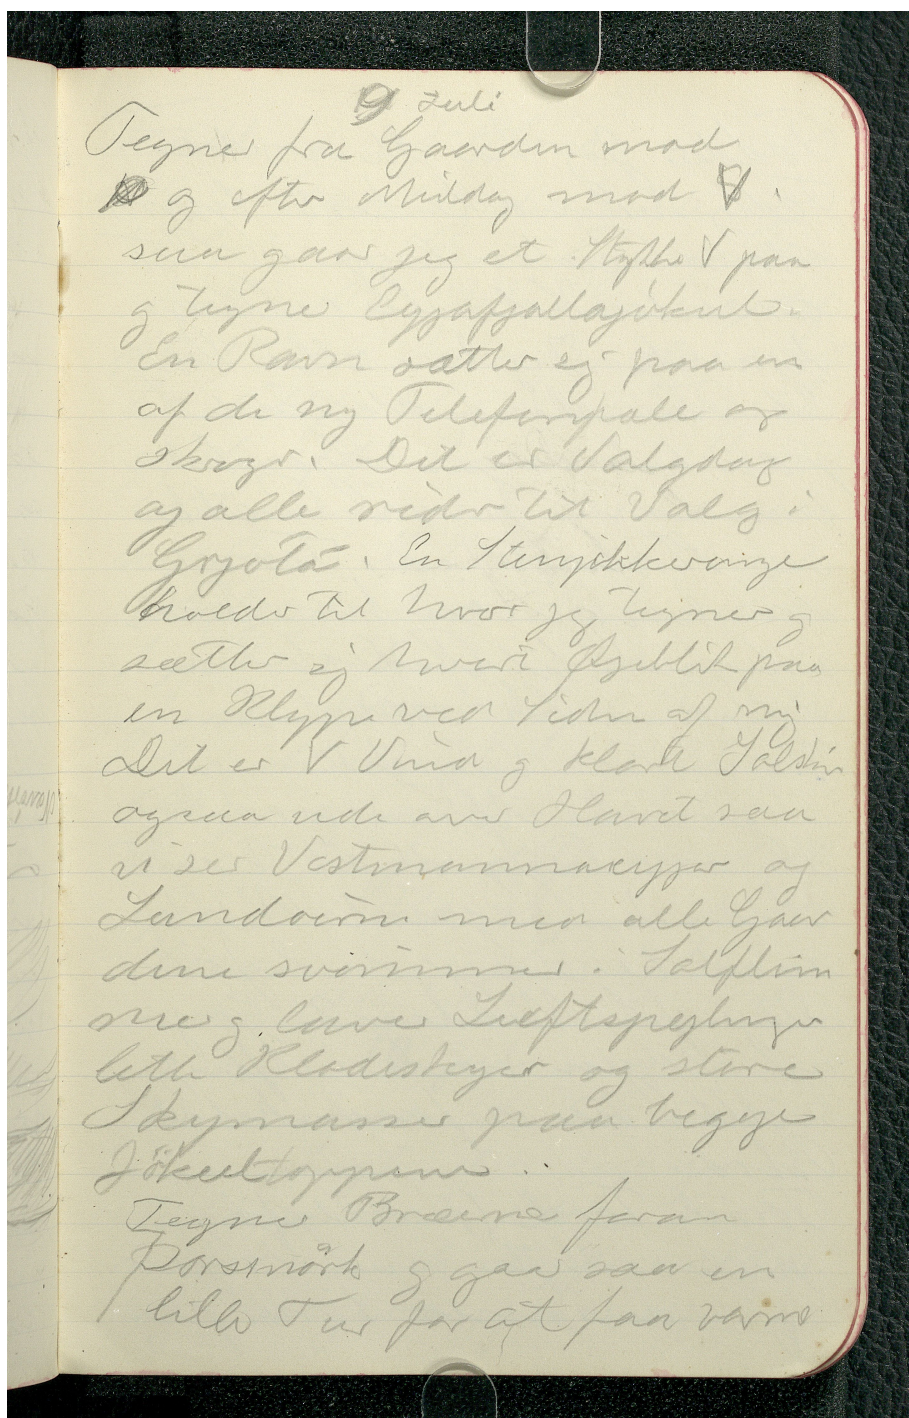 9 Juli
Tegner fra Gaarden mod
og efter Middag mod V.
saa gaar jeg et Stykke V paa
og tegner Eyjafjallajökul.
En Ravn sætter sig paa en
af de ny Telefonpæle og
skriger. Det er Valgdag
og alle rider til Valg i
Grjota. En Stenpikkerunge
holder til hvor jeg tegner og
sætter sig hvert Øjeblik paa
en Klippe ved Siden af mig
Det er V Vind og klart Solskin
ogsaa ude over Havet saa
vi ser Vestmannaeyjar og
Landøerne med alle Gaar
dene svømmer i Solflim
mer og laver Luftspejlinger
lette Kladeskyer og store
Skymasser paa begge
Jökultoppene.
Tegner Bræerne foran
Þorsmörk og gaar saa en
lille Tur for at faa varme